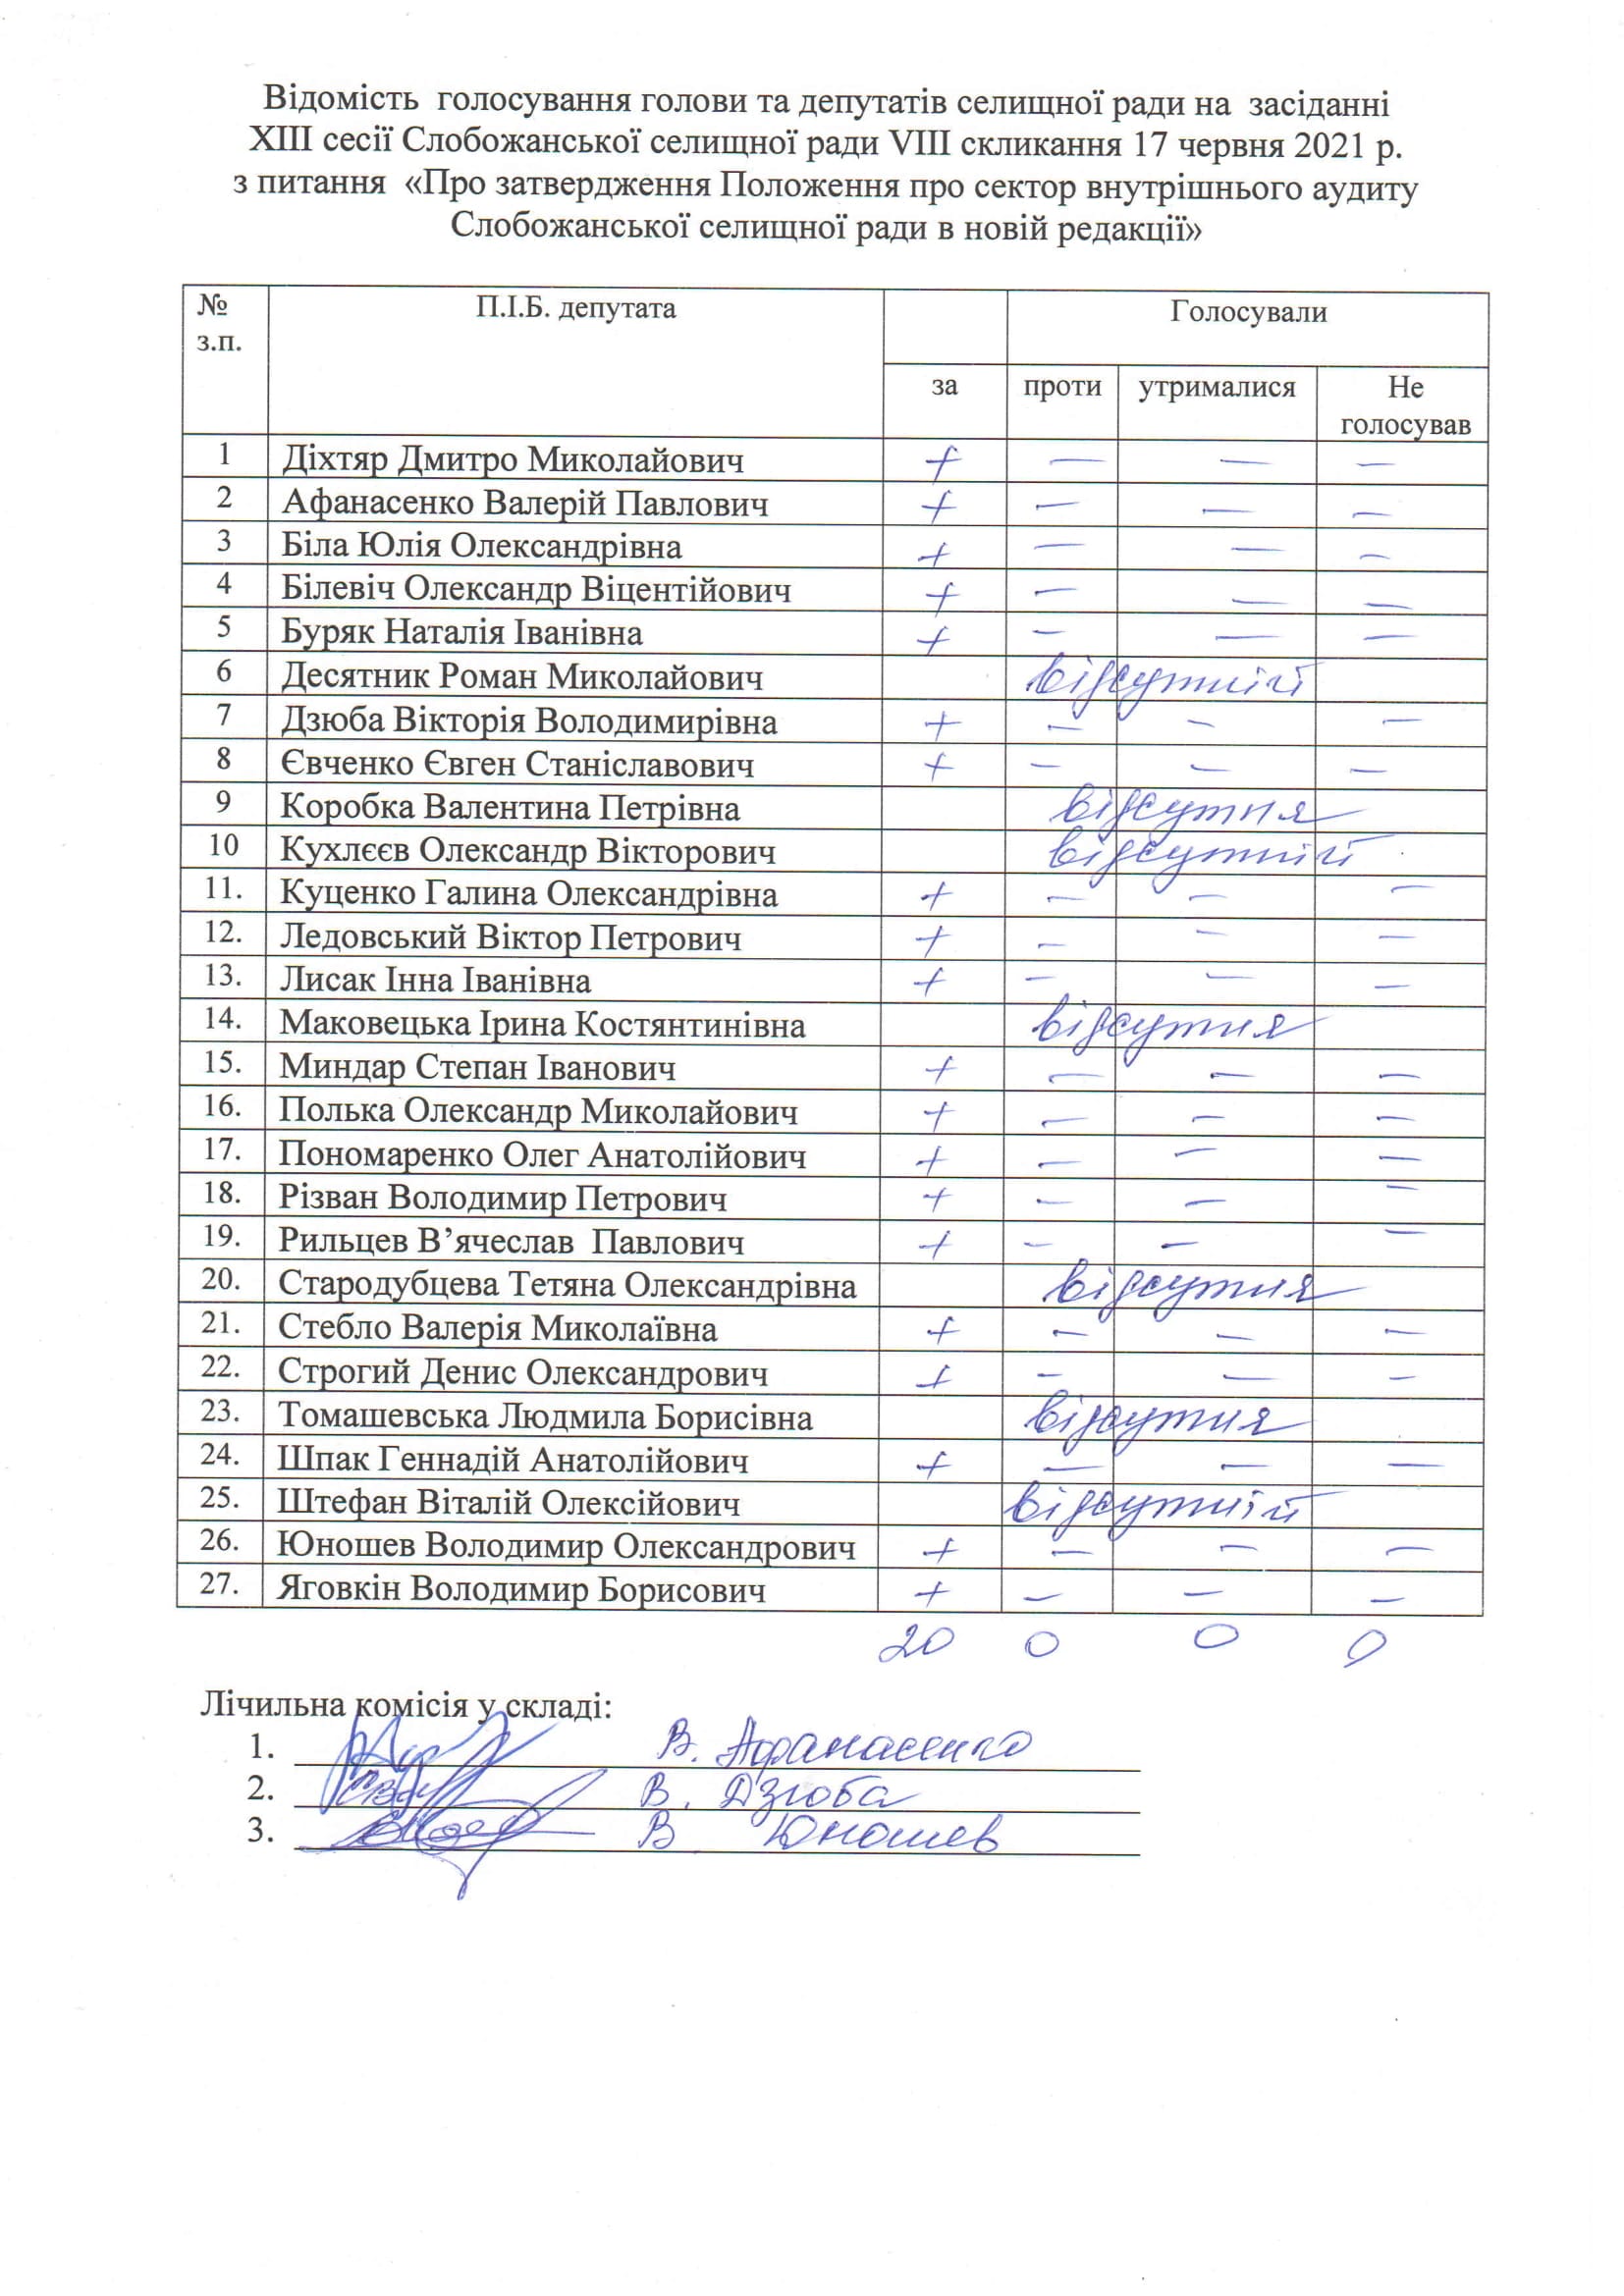 Відомість голосування голови та депутатів селищної ради на засіданні
XIII сесії Слобожанської селищної ради VIII скликання 17 червня 2021 р.
з питання «Про затвердження Положення про сектор внутрішнього аудиту
Слобожанської селищної ради в новій редакції»
№ з.п. П.І.Б. депутата Голосували
за проти утрималися Не голосував
1 Діхтяр Дмитро Миколайович + — — —
2 Афанасенко Валерій Павлович + — — —
3 Біла Юлія Олександрівна + — — —
4 Білевіч Олександр Віцентійович + — — —
5 Буряк Наталія Іванівна + — — —
6 Десятник Роман Миколайович відсутній
7 Дзюба Вікторія Володимирівна + — — —
8 Євченко Євген Станіславович + — — —
9 Коробка Валентина Петрівна відсутня
10 Кухлєєв Олександр Вікторович відсутній
11. Куценко Галина Олександрівна + — — —
12. Ледовський Віктор Петрович + — — —
13. Лисак Інна Іванівна + — — —
14. Маковецька Ірина Костянтинівна відсутня
15. Миндар Степан Іванович + — — —
16. Полька Олександр Миколайович + — — —
17. Пономаренко Олег Анатолійович + — — —
18. Різван Володимир Петрович + — — —
19. Рильцев В’ячеслав Павлович + — — —
20. Стародубцева Тетяна Олександрівна відсутня
21. Стебло Валерія Миколаївна + — — —
22. Строгий Денис Олександрович + — — —
23. Томашевська Людмила Борисівна відсутня
24. Шпак Геннадій Анатолійович + — — —
25. Штефан Віталій Олексійович відсутній
26. Юношев Володимир Олександрович + — — —
27. Яговкін Володимир Борисович + — — —
20 0 0 0
Лічильна комісія у складі:
1. В. Афанасенко
2. В. Дзюба
3. В Юношев